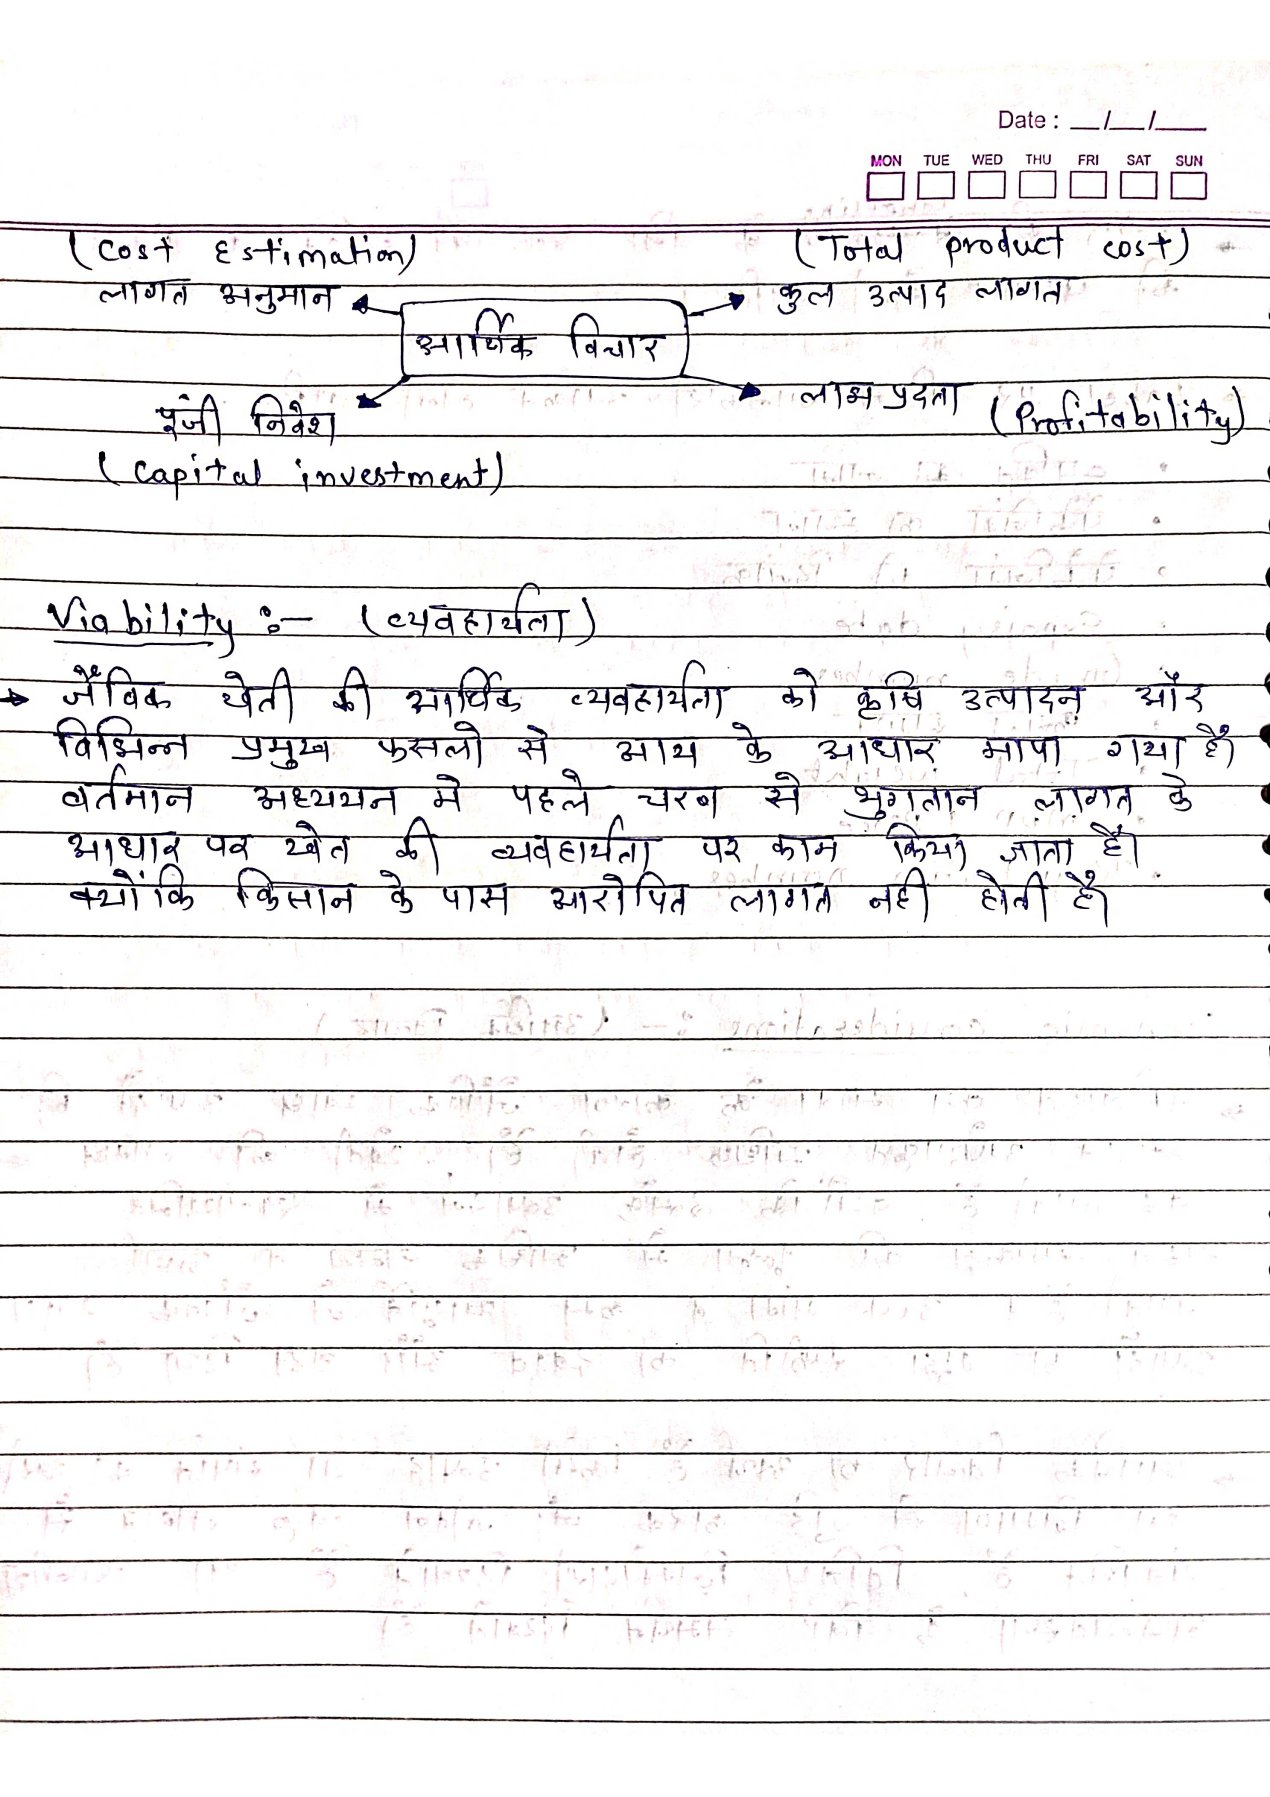 Date : __/__/___
MON TUE WED THU FRI SAT SUN
(Cost Estimation) (Total product cost)
लागत अनुमान कुल उत्पाद लागत
आर्थिक विचार
लाभ प्रदता (Profitability)
पूंजी निवेश
(Capital investment)
Viability :- (व्यवहार्यता)
→ जैविक खेती की आर्थिक व्यवहार्यता को कृषि उत्पादन और
विभिन्न प्रमुख फसलो से आय के आधार मापा गया है।
वर्तमान अध्ययन मे पहले चरण से भुगतान लागत के
आधार पर खेत की व्यवहार्यता पर काम किया जाता है।
क्योंकि किसान के पास आरोपित लागत नही होती है।